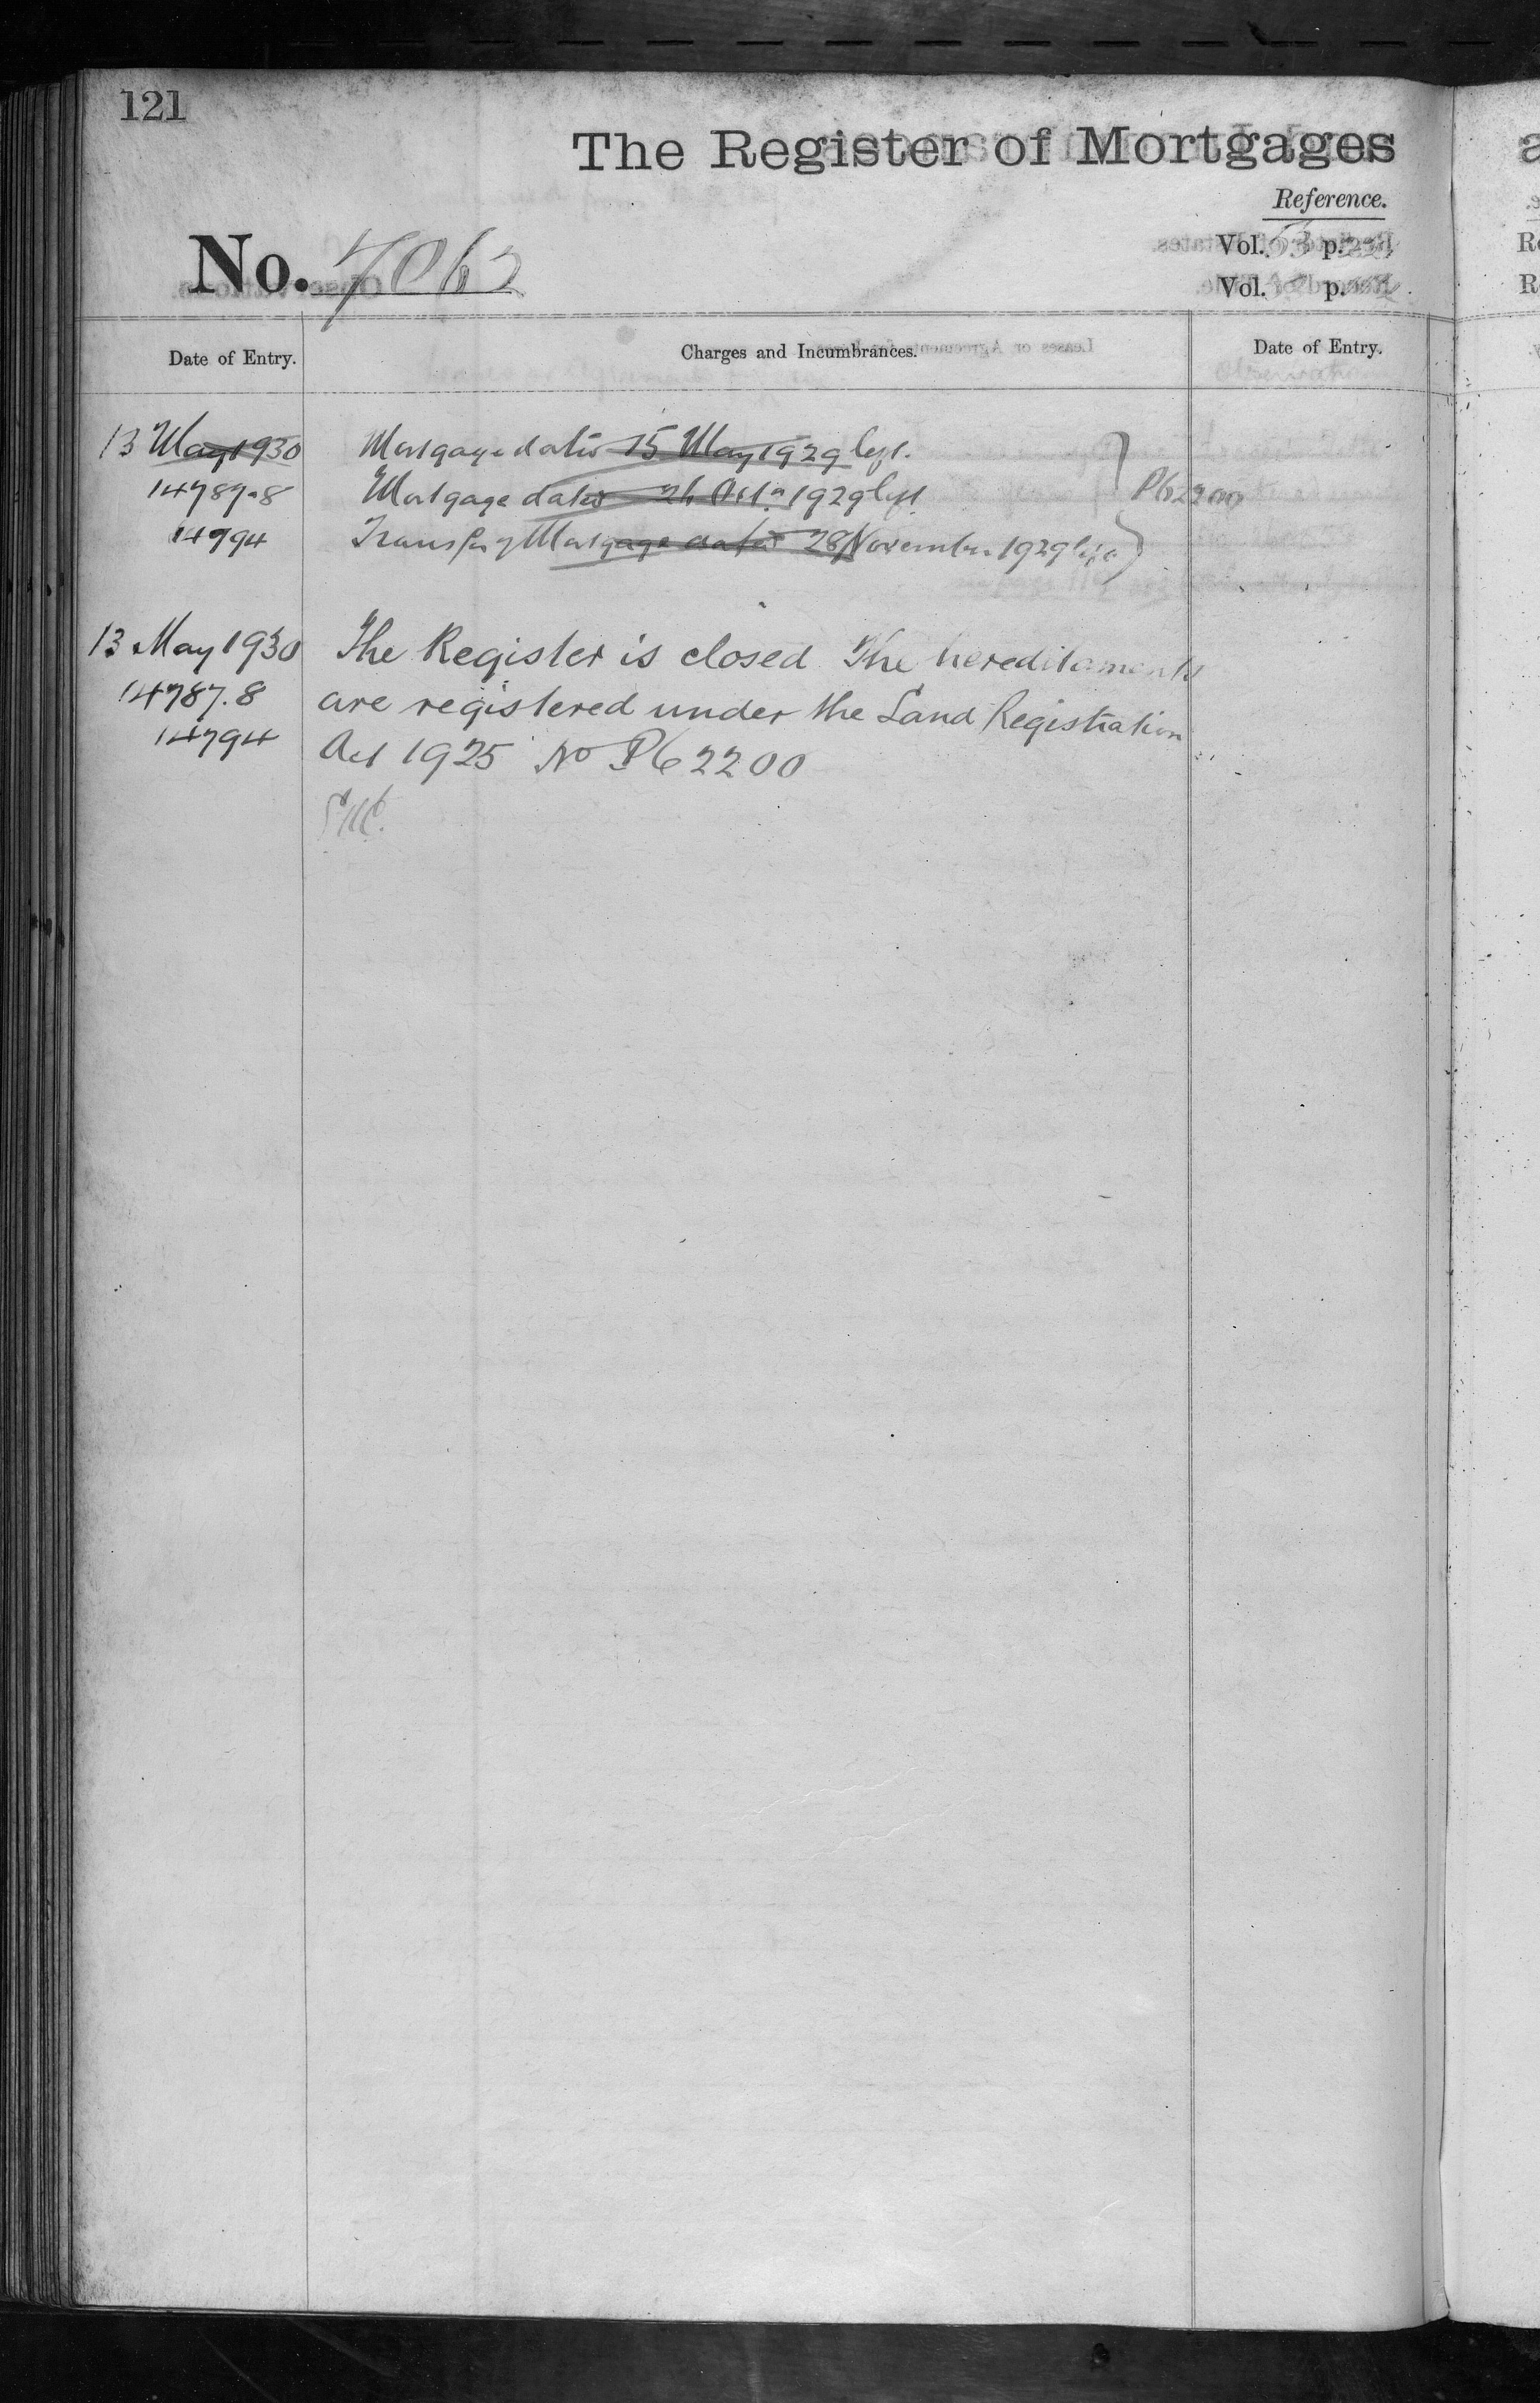 121
The Register of Mortgages
Reference.
No. 7062
Vol. 53 p.
Vol. p.
Date of Entry. Charges and Incumbrances. Date of Entry.
13 May 1930 Mortgage dated 15 May 1929
14787-8 Mortgage dated 26 1929 P62200
14794 Transfer of Mortgage dated 28 November 1929
13 May 1930 The Register is closed The hereditaments
14787.8 are registered under the Land Registration
14794 Act 1925 No P62200